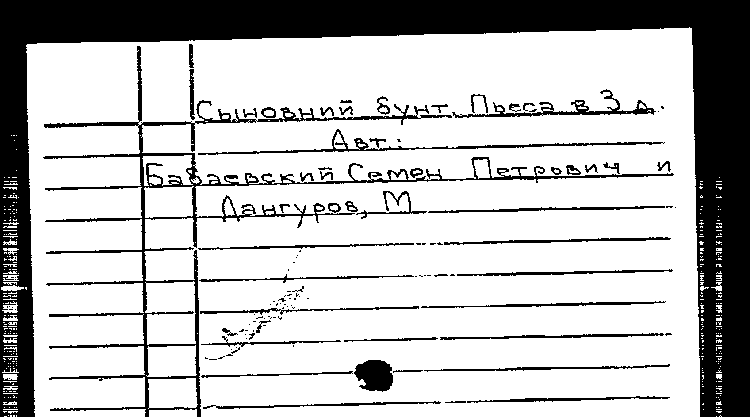 Сыновний бунт. Пьеса в 3 д.
Авт:
Бабаевский Семен Петрович и
Лангуров, М